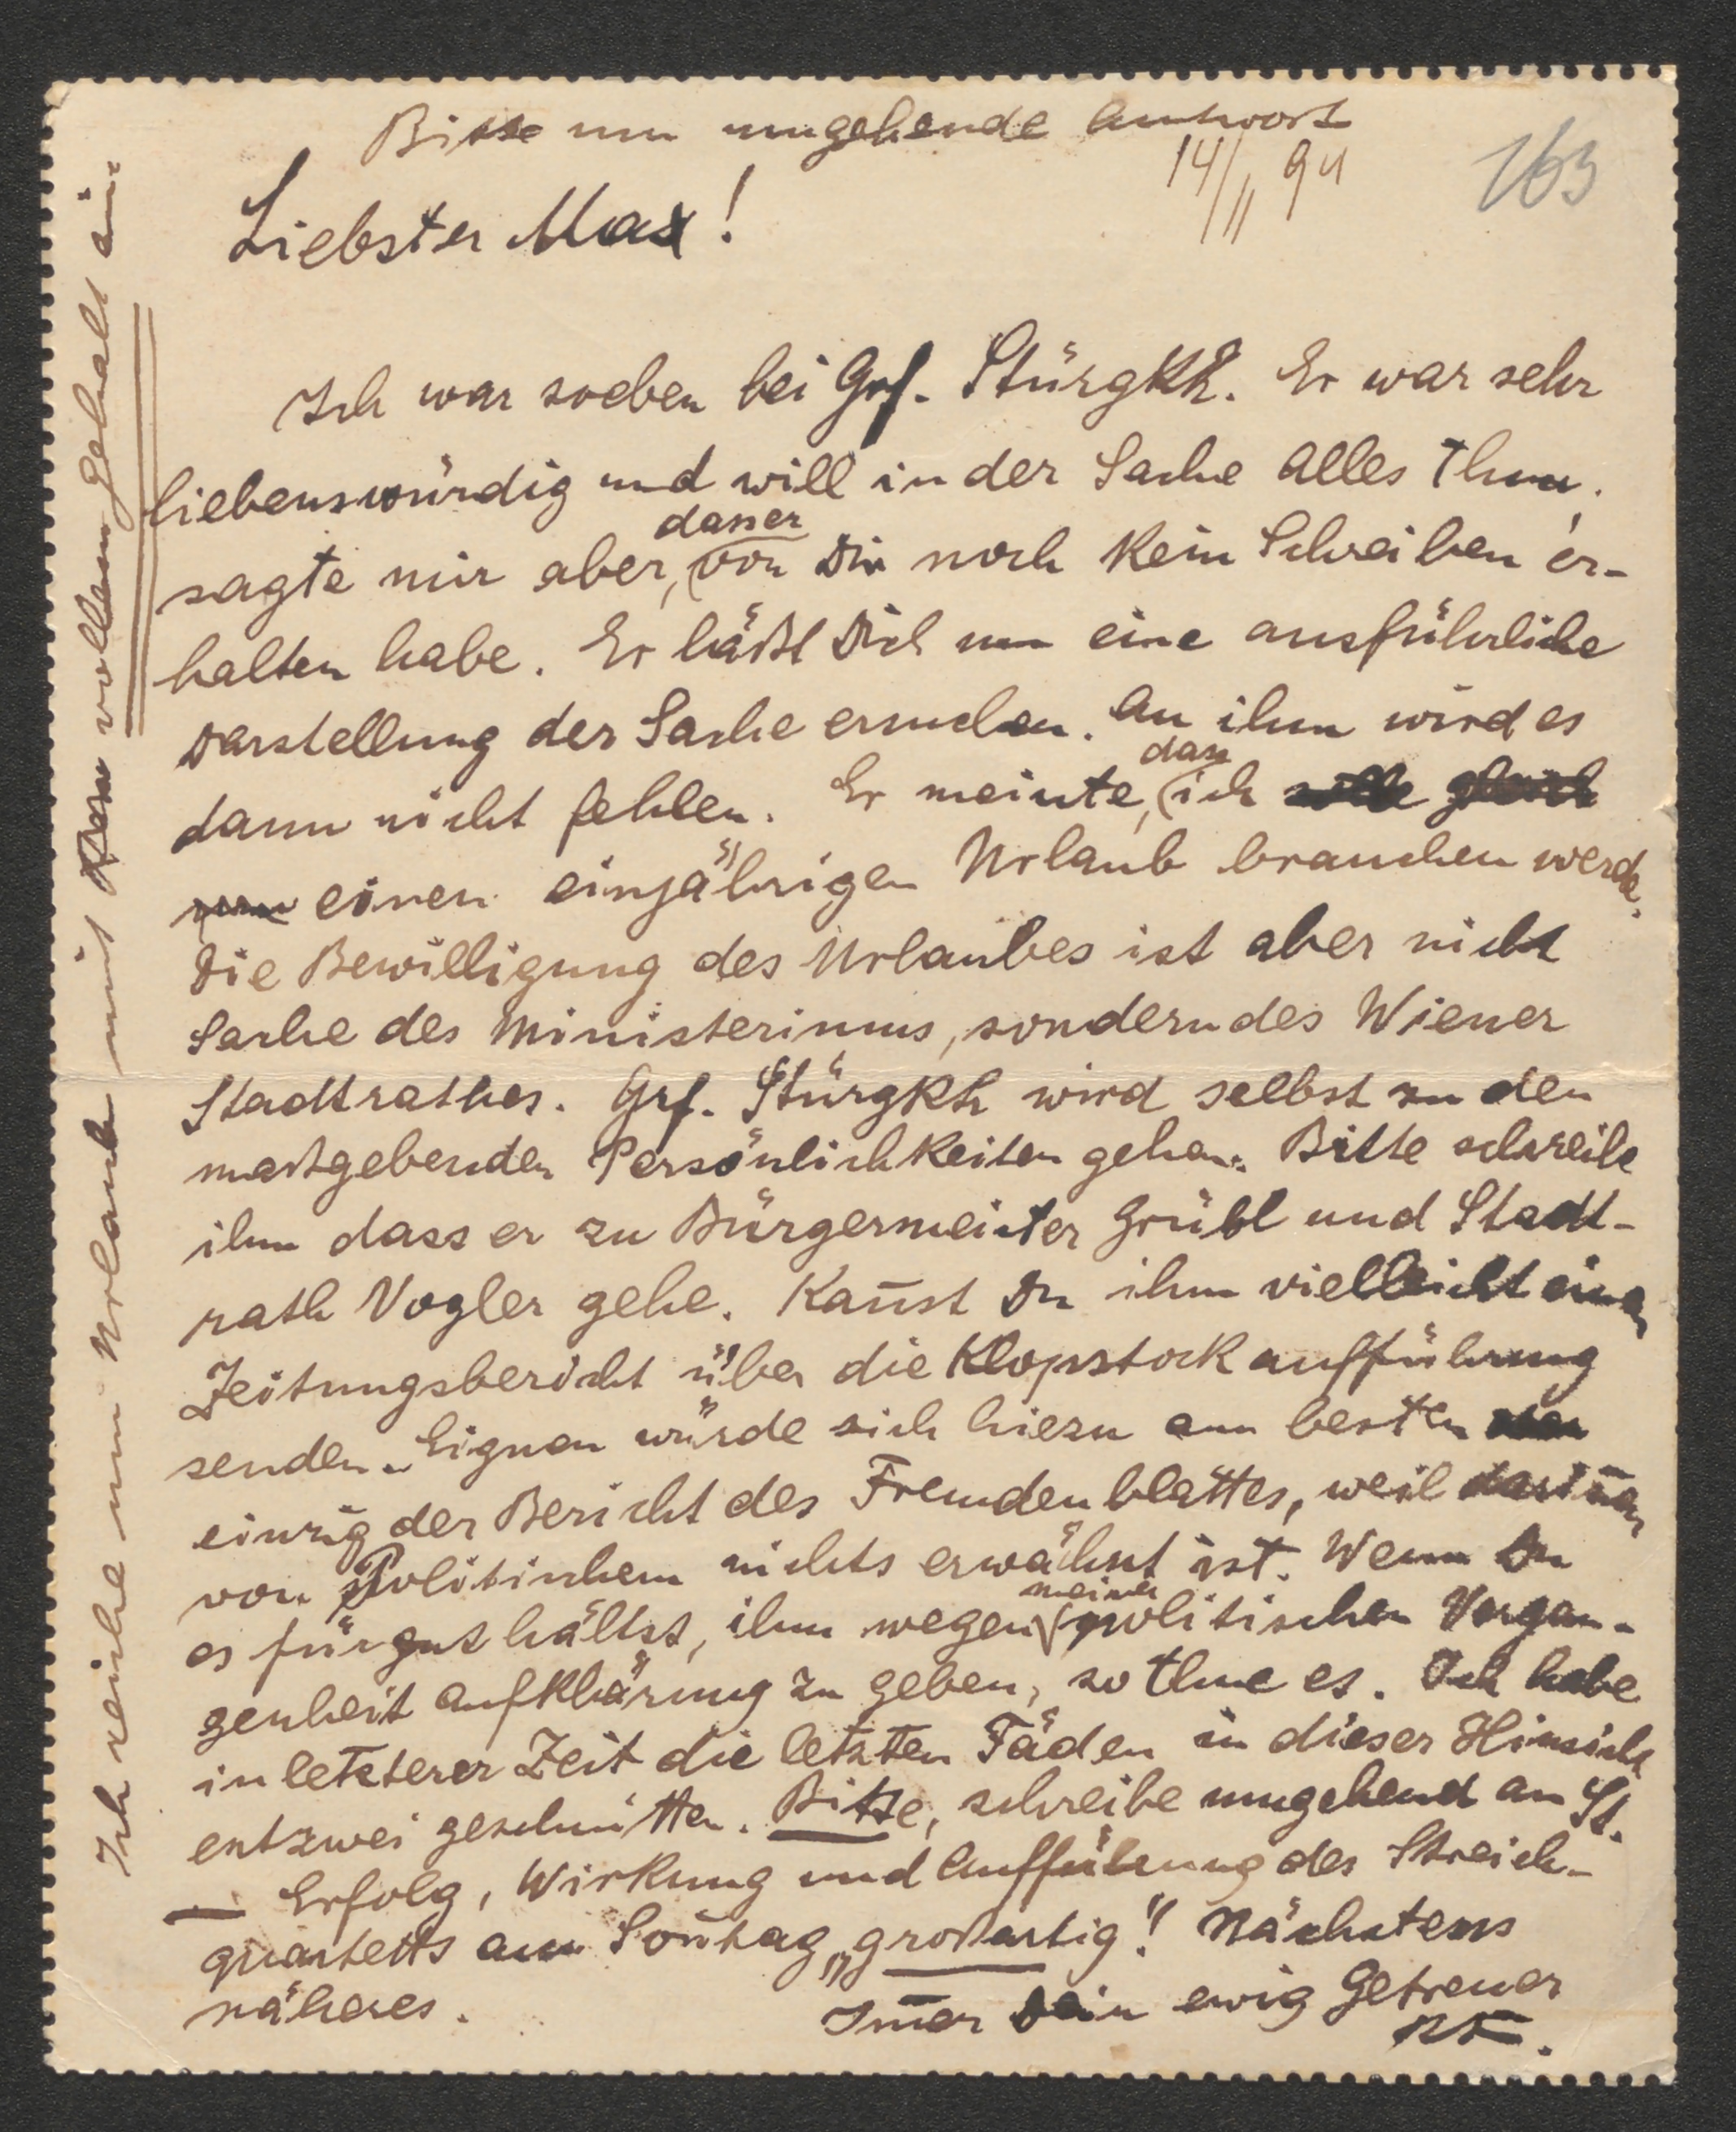 Bitte um umgehende Antwort
14/II 94
163
Liebster Max!
Ich war soeben bei Grf. Stürgkh. Er war sehr
liebenswürdig und will in der Sache alles thun,
sagte mir aber, dass er von Dir noch kein Schreiben er-
halten habe. Er läßt Dich um eine ausführliche
Darstellung der Sache ersuchen. An ihm wird es
dann nicht fehlen. Er meinte, dass ich
einen einjährigen Urlaub brauchen werde.
Die Bewilligung des Urlaubes ist aber nicht
Sache des Ministeriums, sondern des Wiener
Stadtrathes. Grf. Stürgkh wird selbst zu den
maßgebenden Persönlichkeiten gehen. Bitte schreibe
ihm dass er zu Bürgermeister Grübl und Stadt-
rath Vogler gehe. Kan̄st Du ihm vielleicht einen
Zeitungsbericht über die Klopstockaufführung
senden. Eignen würde sich hiezu am besten
einzig der Bericht des Fremdenblattes, weil darin̄en
von Politischem nichts erwähnt ist. Wenn Du
es für gut hältst, ihm wegen meiner politischen Vergan-
genheit Aufklärung zu geben, so thue es. Ich habe
in letzterer Zeit die letzten Fäden in dieser Hinsicht
entzwei geschnitten. Bitte, schreibe umgehend an St.
— Erfolg, Wirkung und Aufführung des Streich-
quartetts am Son̄tag „großartig"! Nächstens
näheres.
Im̄er Dein ewig Getreuer
Ich reiche um Urlaub mit vollem Gehalt ein